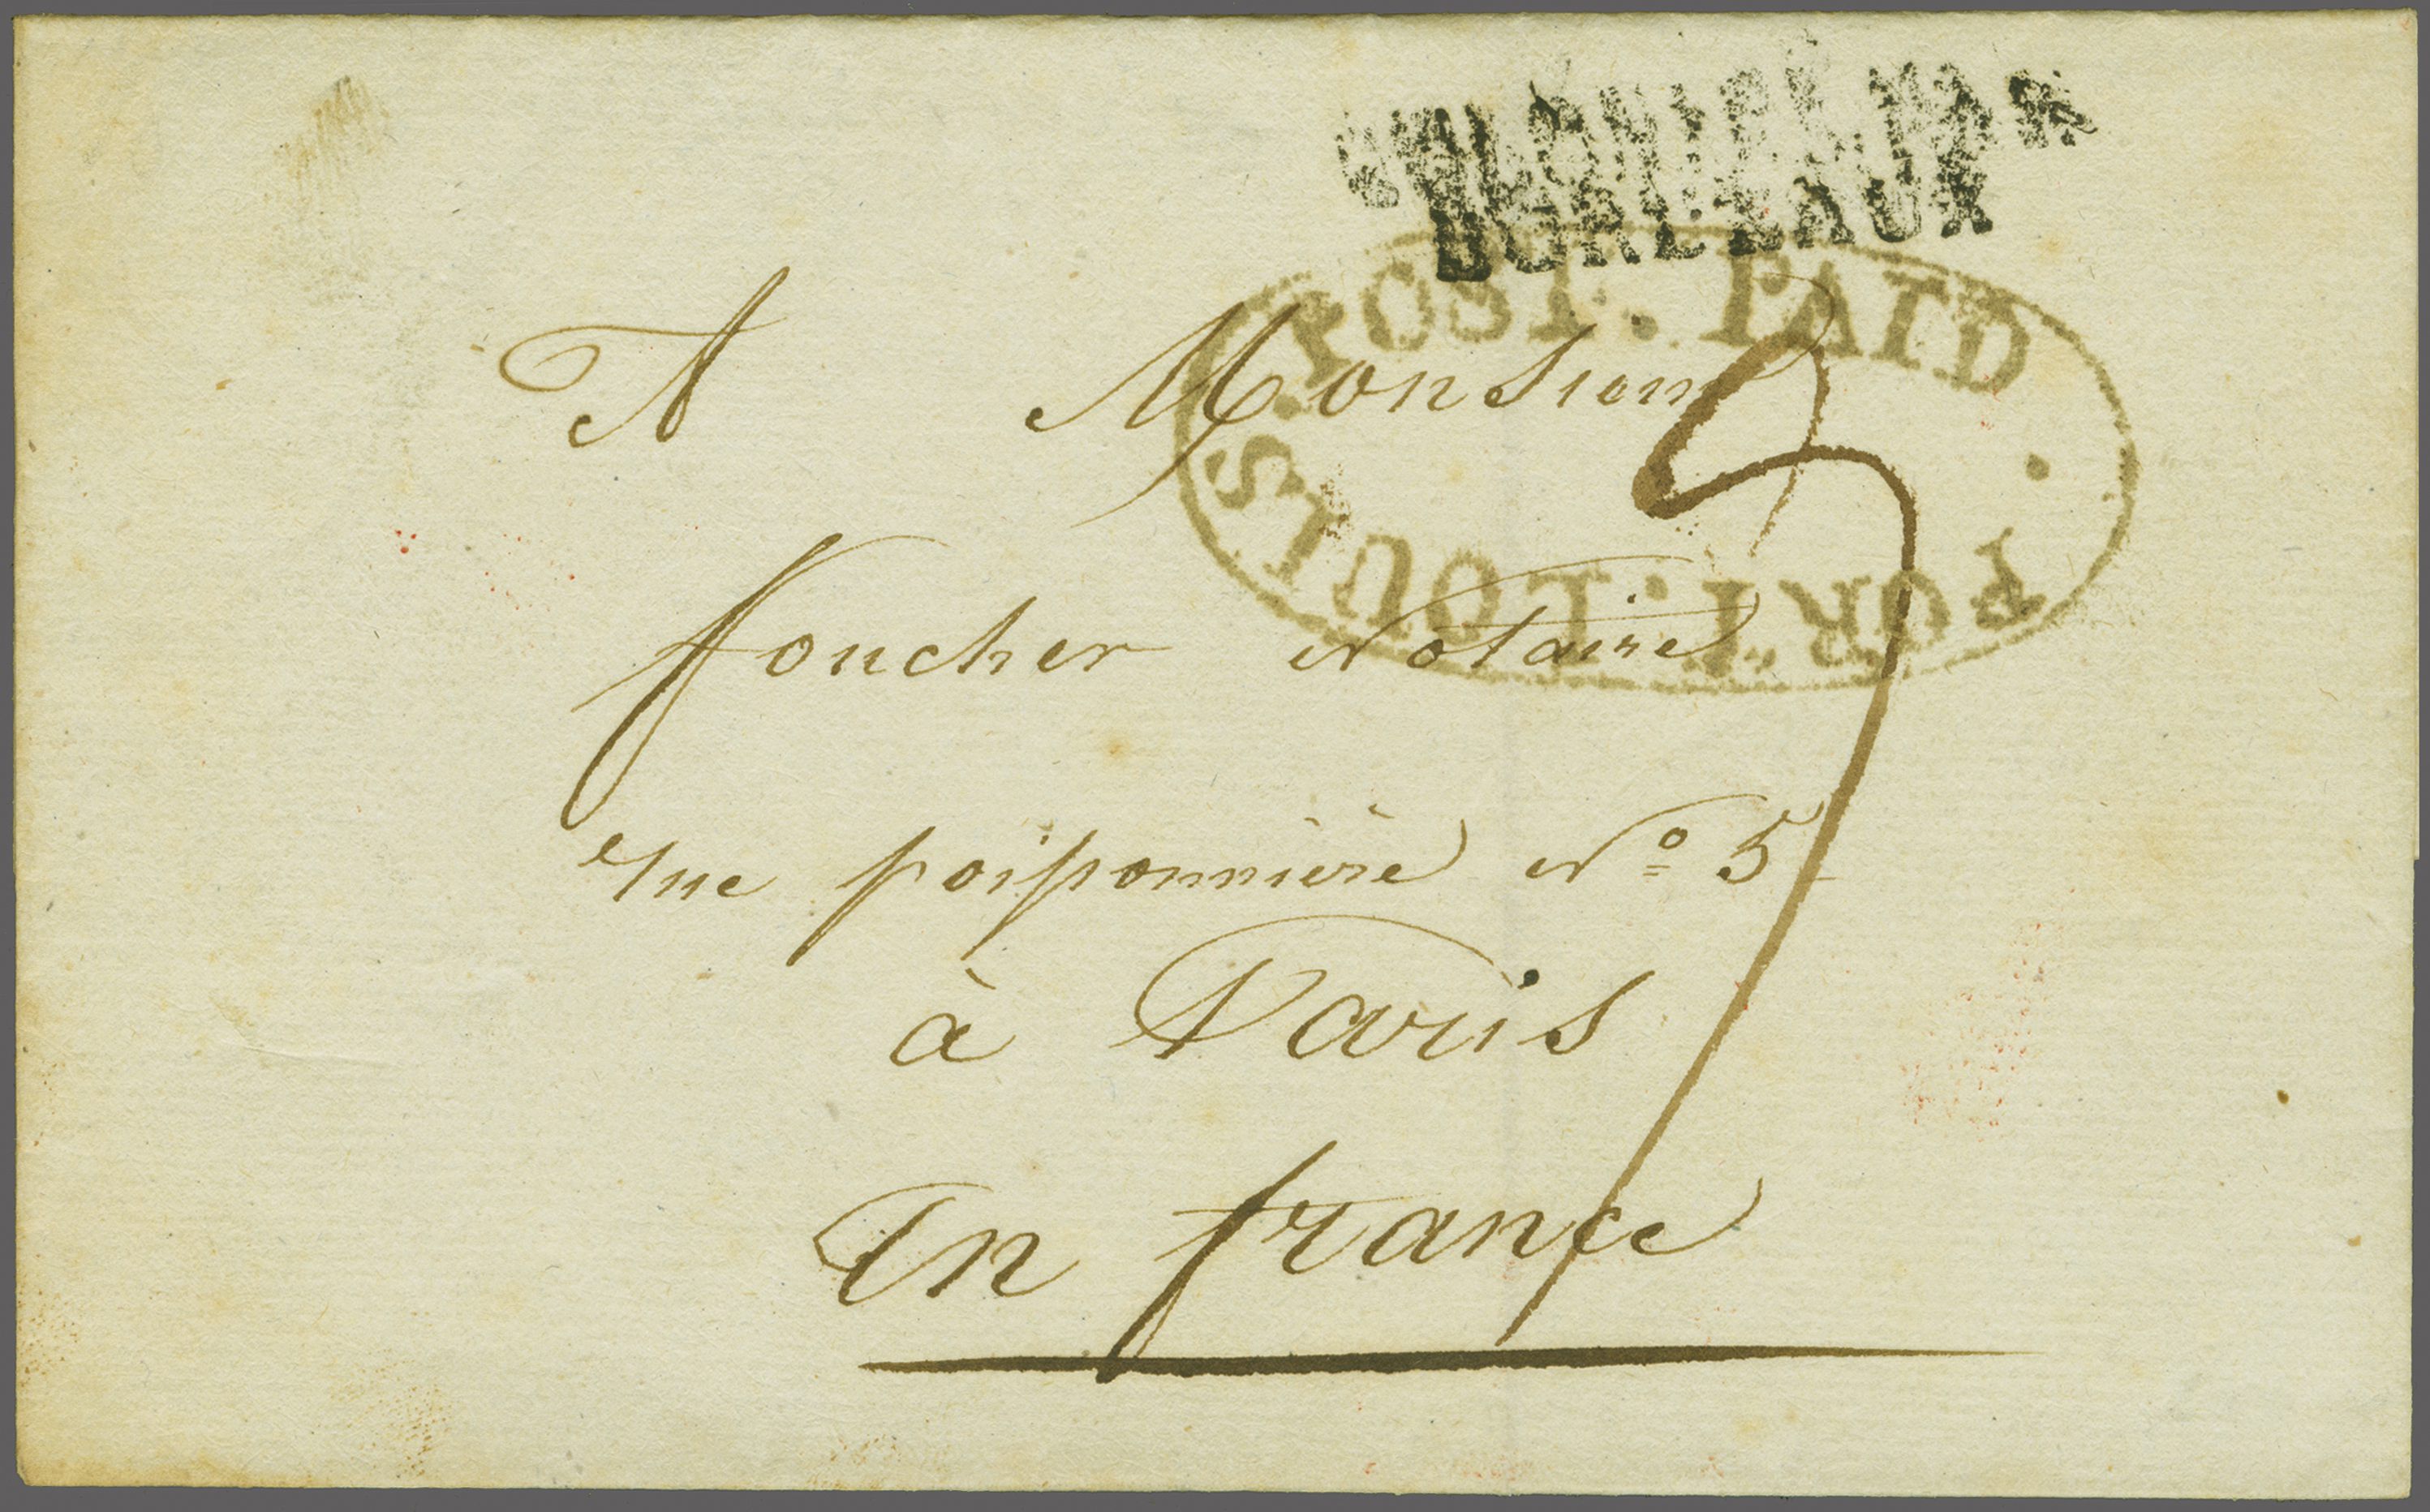 COLONIES PAR
BORDEAUX
POST. PAID
PORT. LOUIS
A Monsieur
foucher Notaire
rue poissonnière Nº 5
à Paris
En france